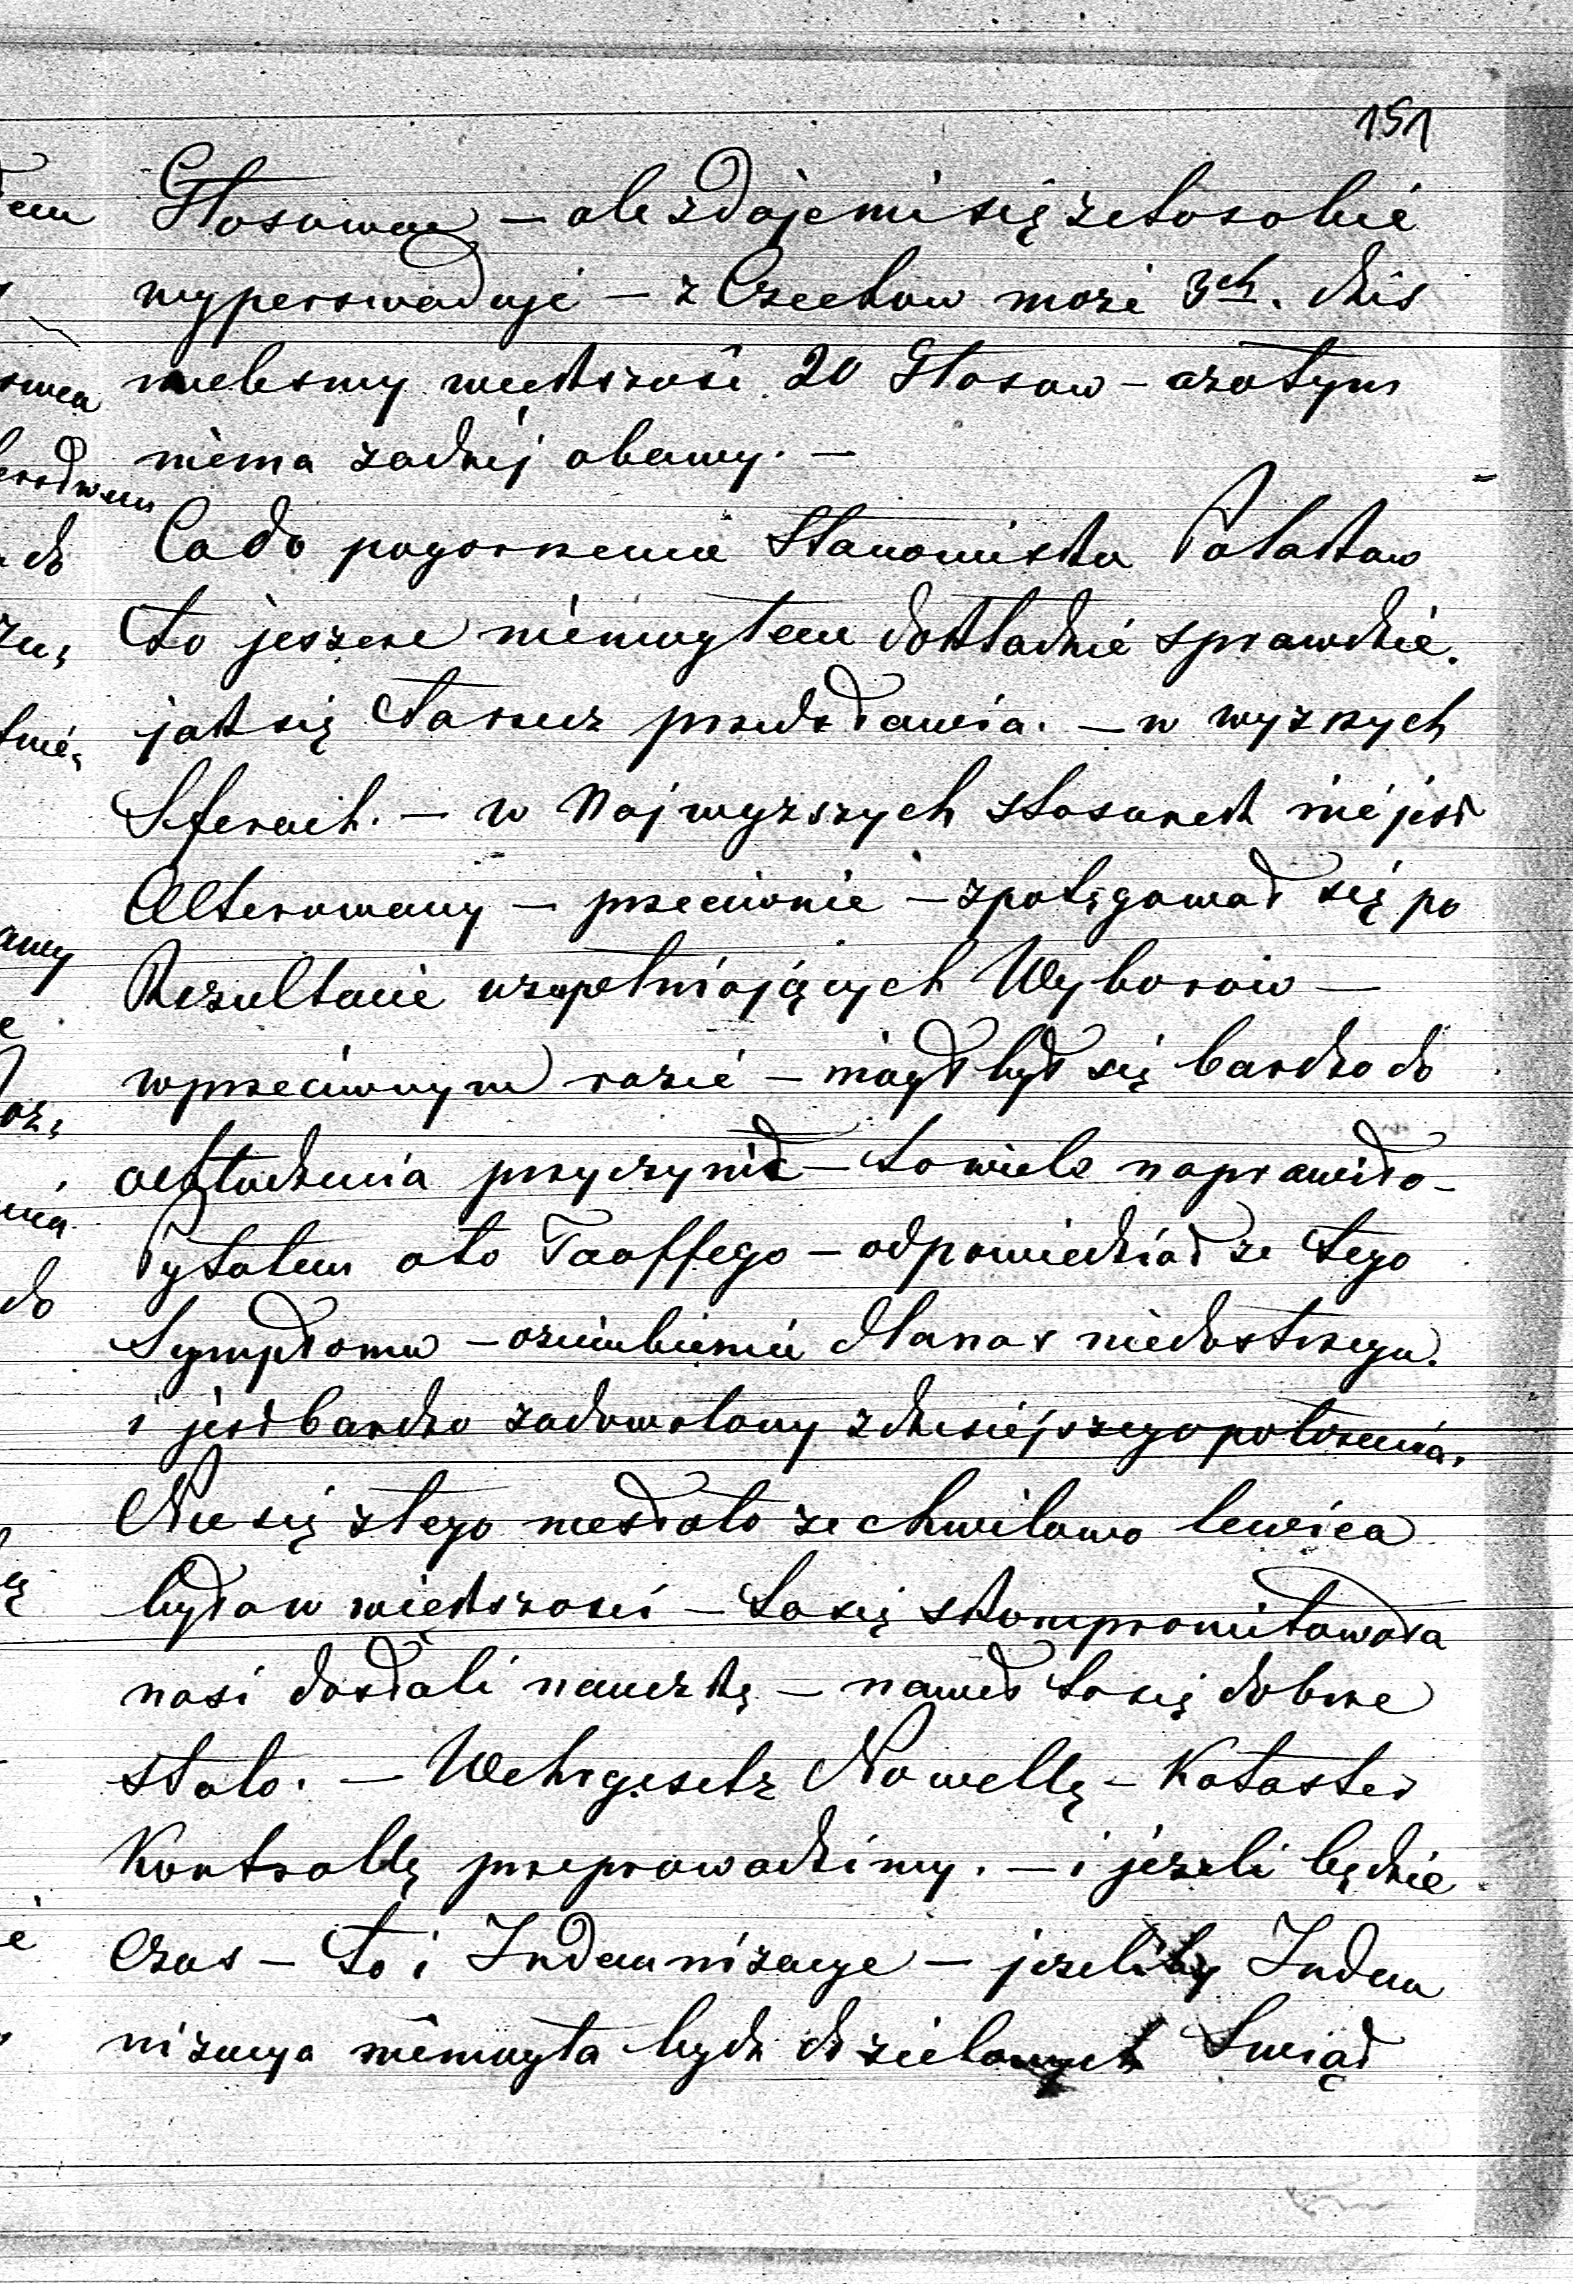 151
Głosować – ale zdaje mi się że to sobie
wyperswaduje – z Czechow może 3ch. dziś
mielismy wiekszość 20 Głosow – a zatym
niema zadnej obawy. –
Co do pogorszenia Stanowiska Polakow
to jeszcze niemogłem dokładnie sprawdzić.
jak się ta rzecz przedstawia. – w wyzszych
Sferach. – w Najwyzszych stosunek nie jest
Alterowany – przeciwnie – spotęgował się po
Rezultacie uzupełniających Wyborow –
w przeciwnym razie – mógł był się bardzo do
ochłodzenia przyczynić – to wiele naprawiło –
Pytałem oto Taaffego – odpowiedział ze tego
Symptomu – oziembienia dla nas niedostrzega.
i jest bardzo zadowolony z dzisiejszego położenia.
Nic się złego niestało ze chwilowo lewica
była w większości – to się skompromitowała
nasi dostali nauczkę – nawet to się dobrze
stało. – Wehrgesetz Nowellę – Kataster
Kontrollę przeprowadzimy. – i jeżeli będzie
Czas – to i Indemnizacye – jezeliby Indem
nizacya niemogła bydz